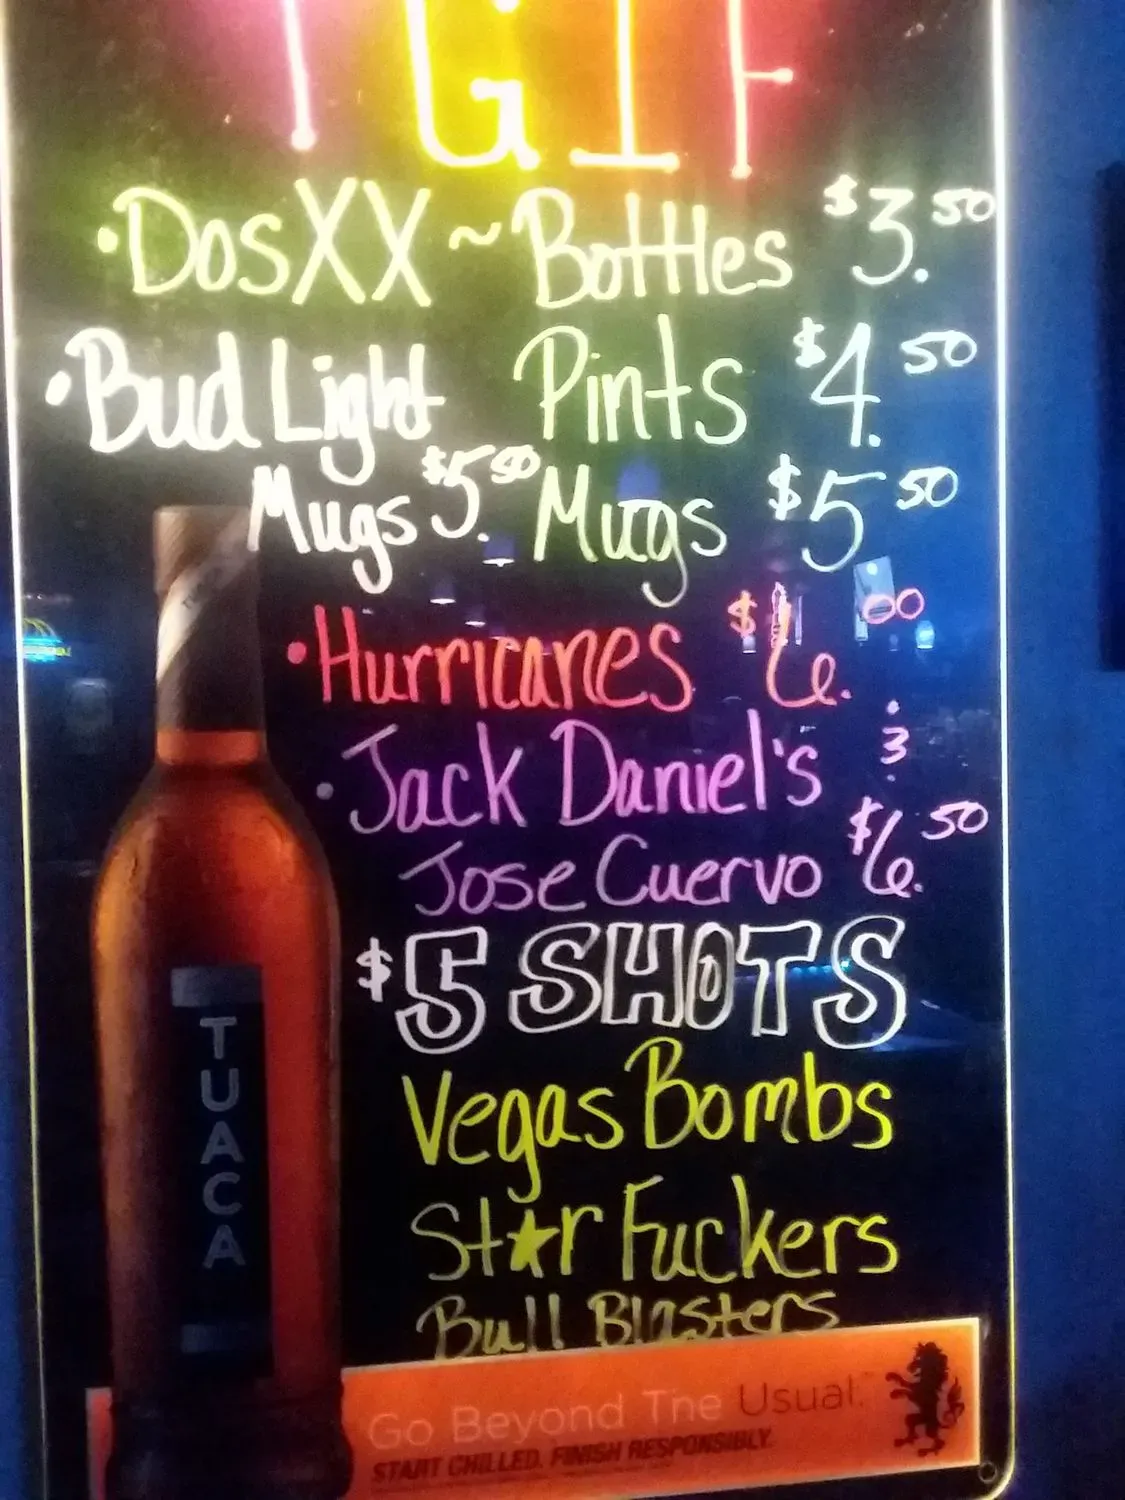 TGIF
• Dos XX ~ Bottles $3.50
• Bud Light Pints $4.50
Mugs $5.50 Mugs $5.50
• Hurricanes $6.00
• Jack Daniel's &
Jose Cuervo $6.50
$5 SHOTS
Vegas Bombs
St★r Fuckers
Bull Blasters
TUACA
Go Beyond The Usual.
START CHILLED. FINISH RESPONSIBLY.